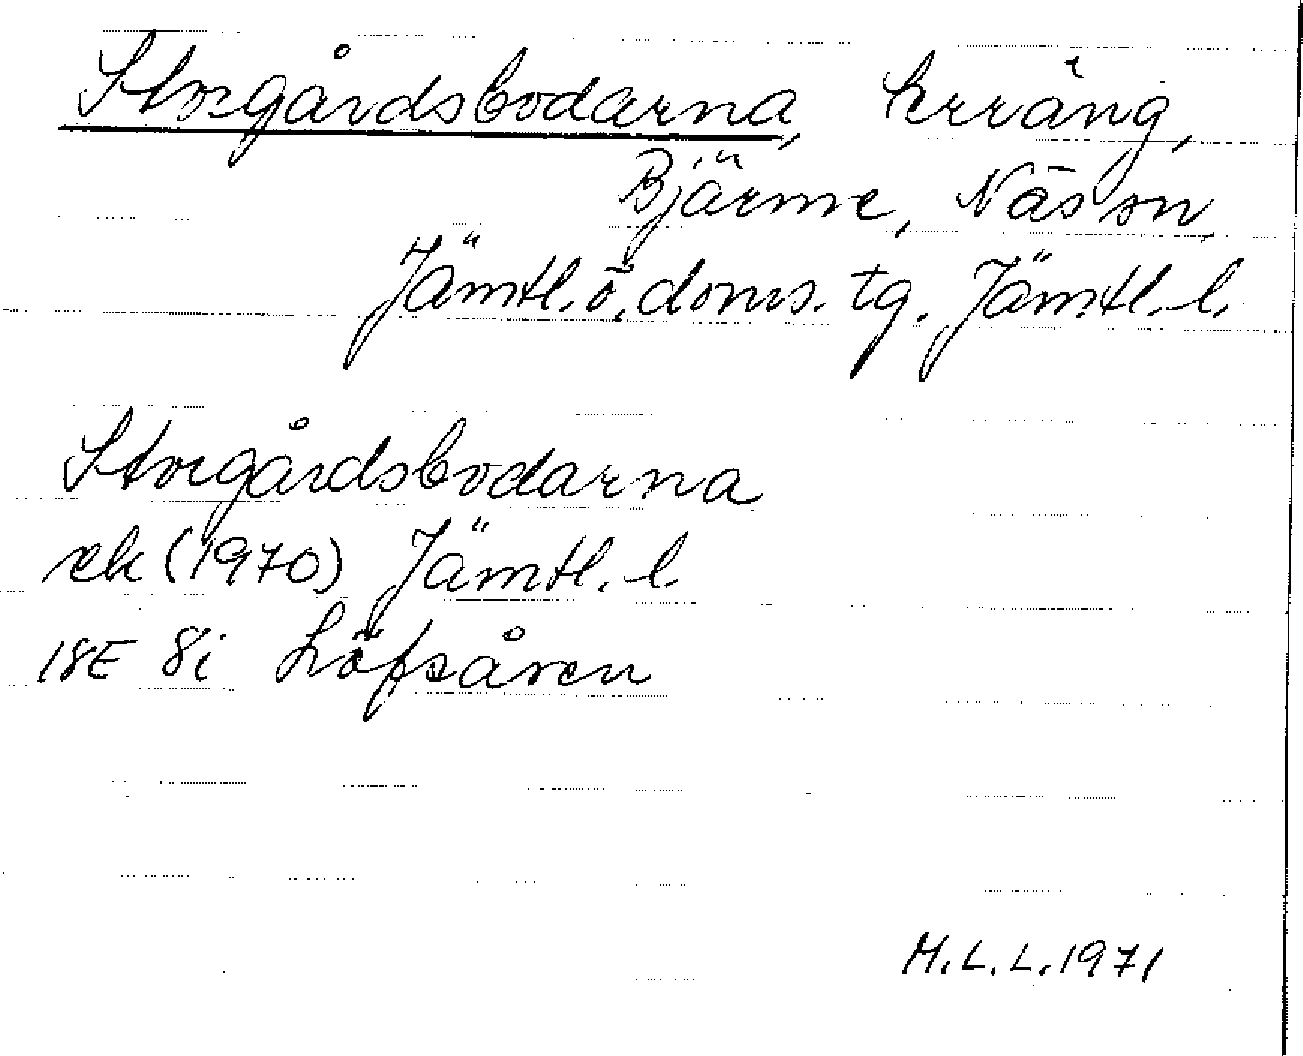 Storgårdsbodarna, terräng,
Bjärme, Näs sn,
Jämtl. ö. doms. tg. Jämtl. l.
Storgårdsbodarna
ek (1970) Jämtl. l
18E 8i Löfsåren
M.L.L. 1971